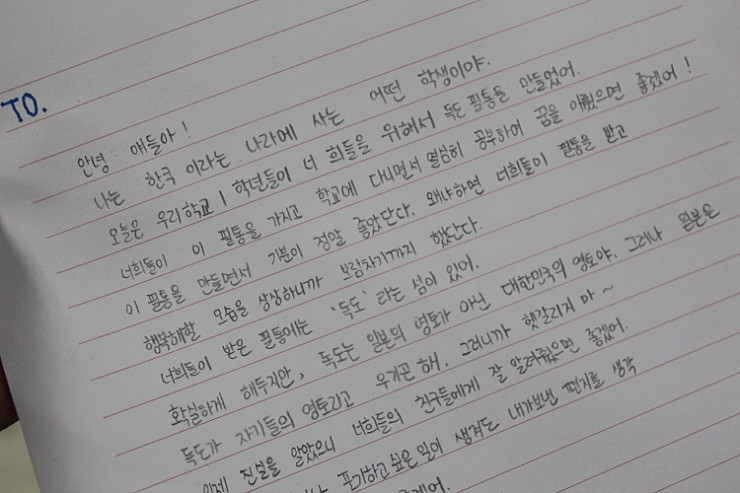 TO.
안녕 애들아!
나는 한국 이라는 나라에 사는 어떤 학생이야.
오늘은 우리학교 1학년들이 너희들을 위해서 독도 필통을 만들었어.
너희들이 이 필통을 가지고 학교에 다니면서 열심히 공부하여 꿈을 이뤘으면 좋겠어!
이 필통을 만들면서 기분이 정말 좋았단다. 왜냐하면 너희들이 필통을 받고
행복해할 모습을 상상하니까 보람차기까지 했단다.
너희들이 받은 필통에는 '독도' 라는 섬이 있어.
확실하게 해두지만, 독도는 일본의 영토가 아닌 대한민국의 영토야. 그러나 일본은
독도가 자기들의 영토라고 우기곤 해. 그러니까 헷갈리지 마~
이제 진실을 알았으니 너희들의 친구들에게 잘 알려줬으면 좋겠어.
포기하고 싶은 일이 생겨도 내가보낸 편지를 생각
좋겠어.